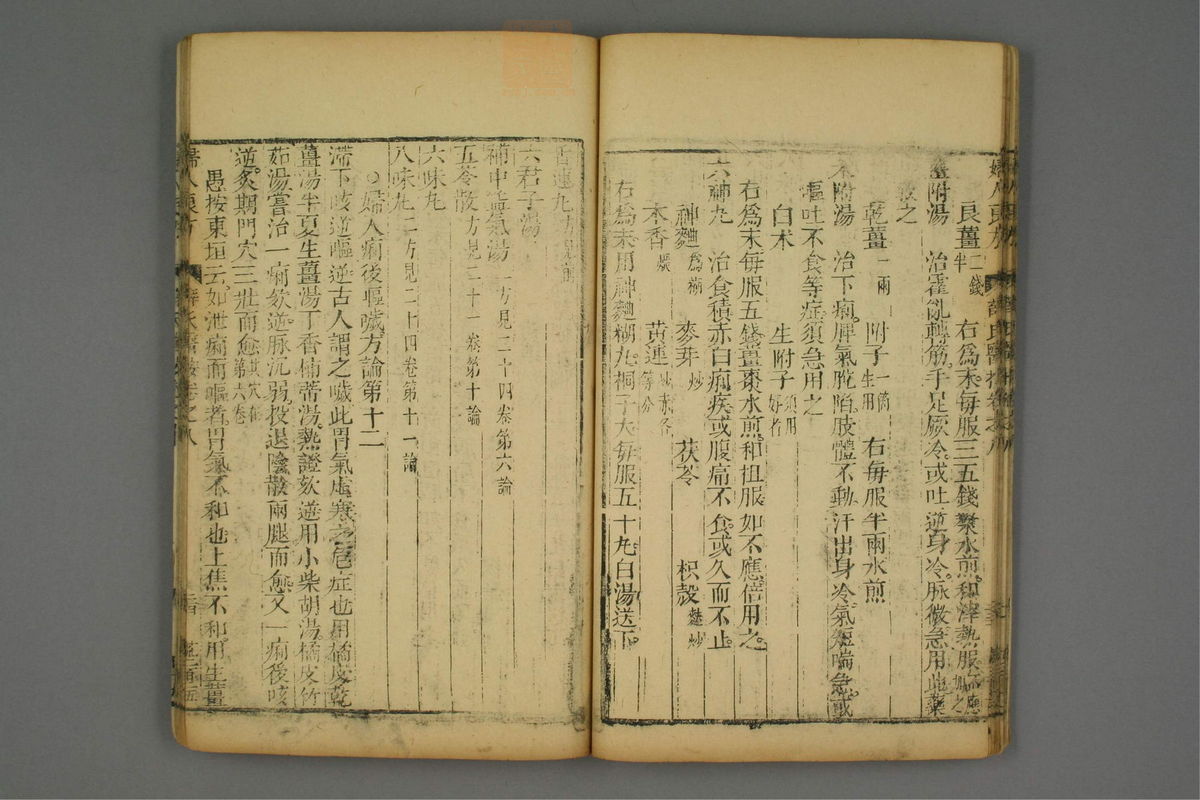 良薑二錢半　右為末每服三五錢棗水煎和滓熱服如不應加之
薑附湯　治霍亂轉筋手足厥冷或吐逆身冷脉微急用此藥
救之
乾薑一兩　附子一個生用　右每服半兩水煎
朮附湯　治下痢脾氣脫陷肢體不動汗出身冷氣短喘急或
嘔吐不食等症須急用之
白朮　生附子須用好者
右為末每服五錢薑棗水煎和柤服如不應倍用之
六神丸　治食積赤白痢疾或腹痛不食或久而不止
神麯為糊　麥芽炒　茯苓　枳殼麩炒
木香煨　黄連炒赤各等分
右為末用神麯糊丸桐子大每服五十丸白湯送下
六君子湯
補中益氣湯二方見二十四卷第六論
五苓散方見二十一卷第十論
六味丸
八味丸二方見二十四卷第十一論
○婦人痢後嘔噦方論第十二
滯下咳逆嘔逆古人謂之噦此胃氣虛寒之危症也用橘皮乾
薑湯半夏生薑湯丁香柿蒂湯熱證欬逆用小柴胡湯橘皮竹
茹湯嘗治一痢欬逆脉沉弱投退陰散兩腿而愈又一痢後咳
逆灸期門穴三壯而愈其穴在第六卷
愚按東垣云如泄痢而嘔者胃氣不和也上焦不和用生薑
婦人良方
薛氏醫按卷之八